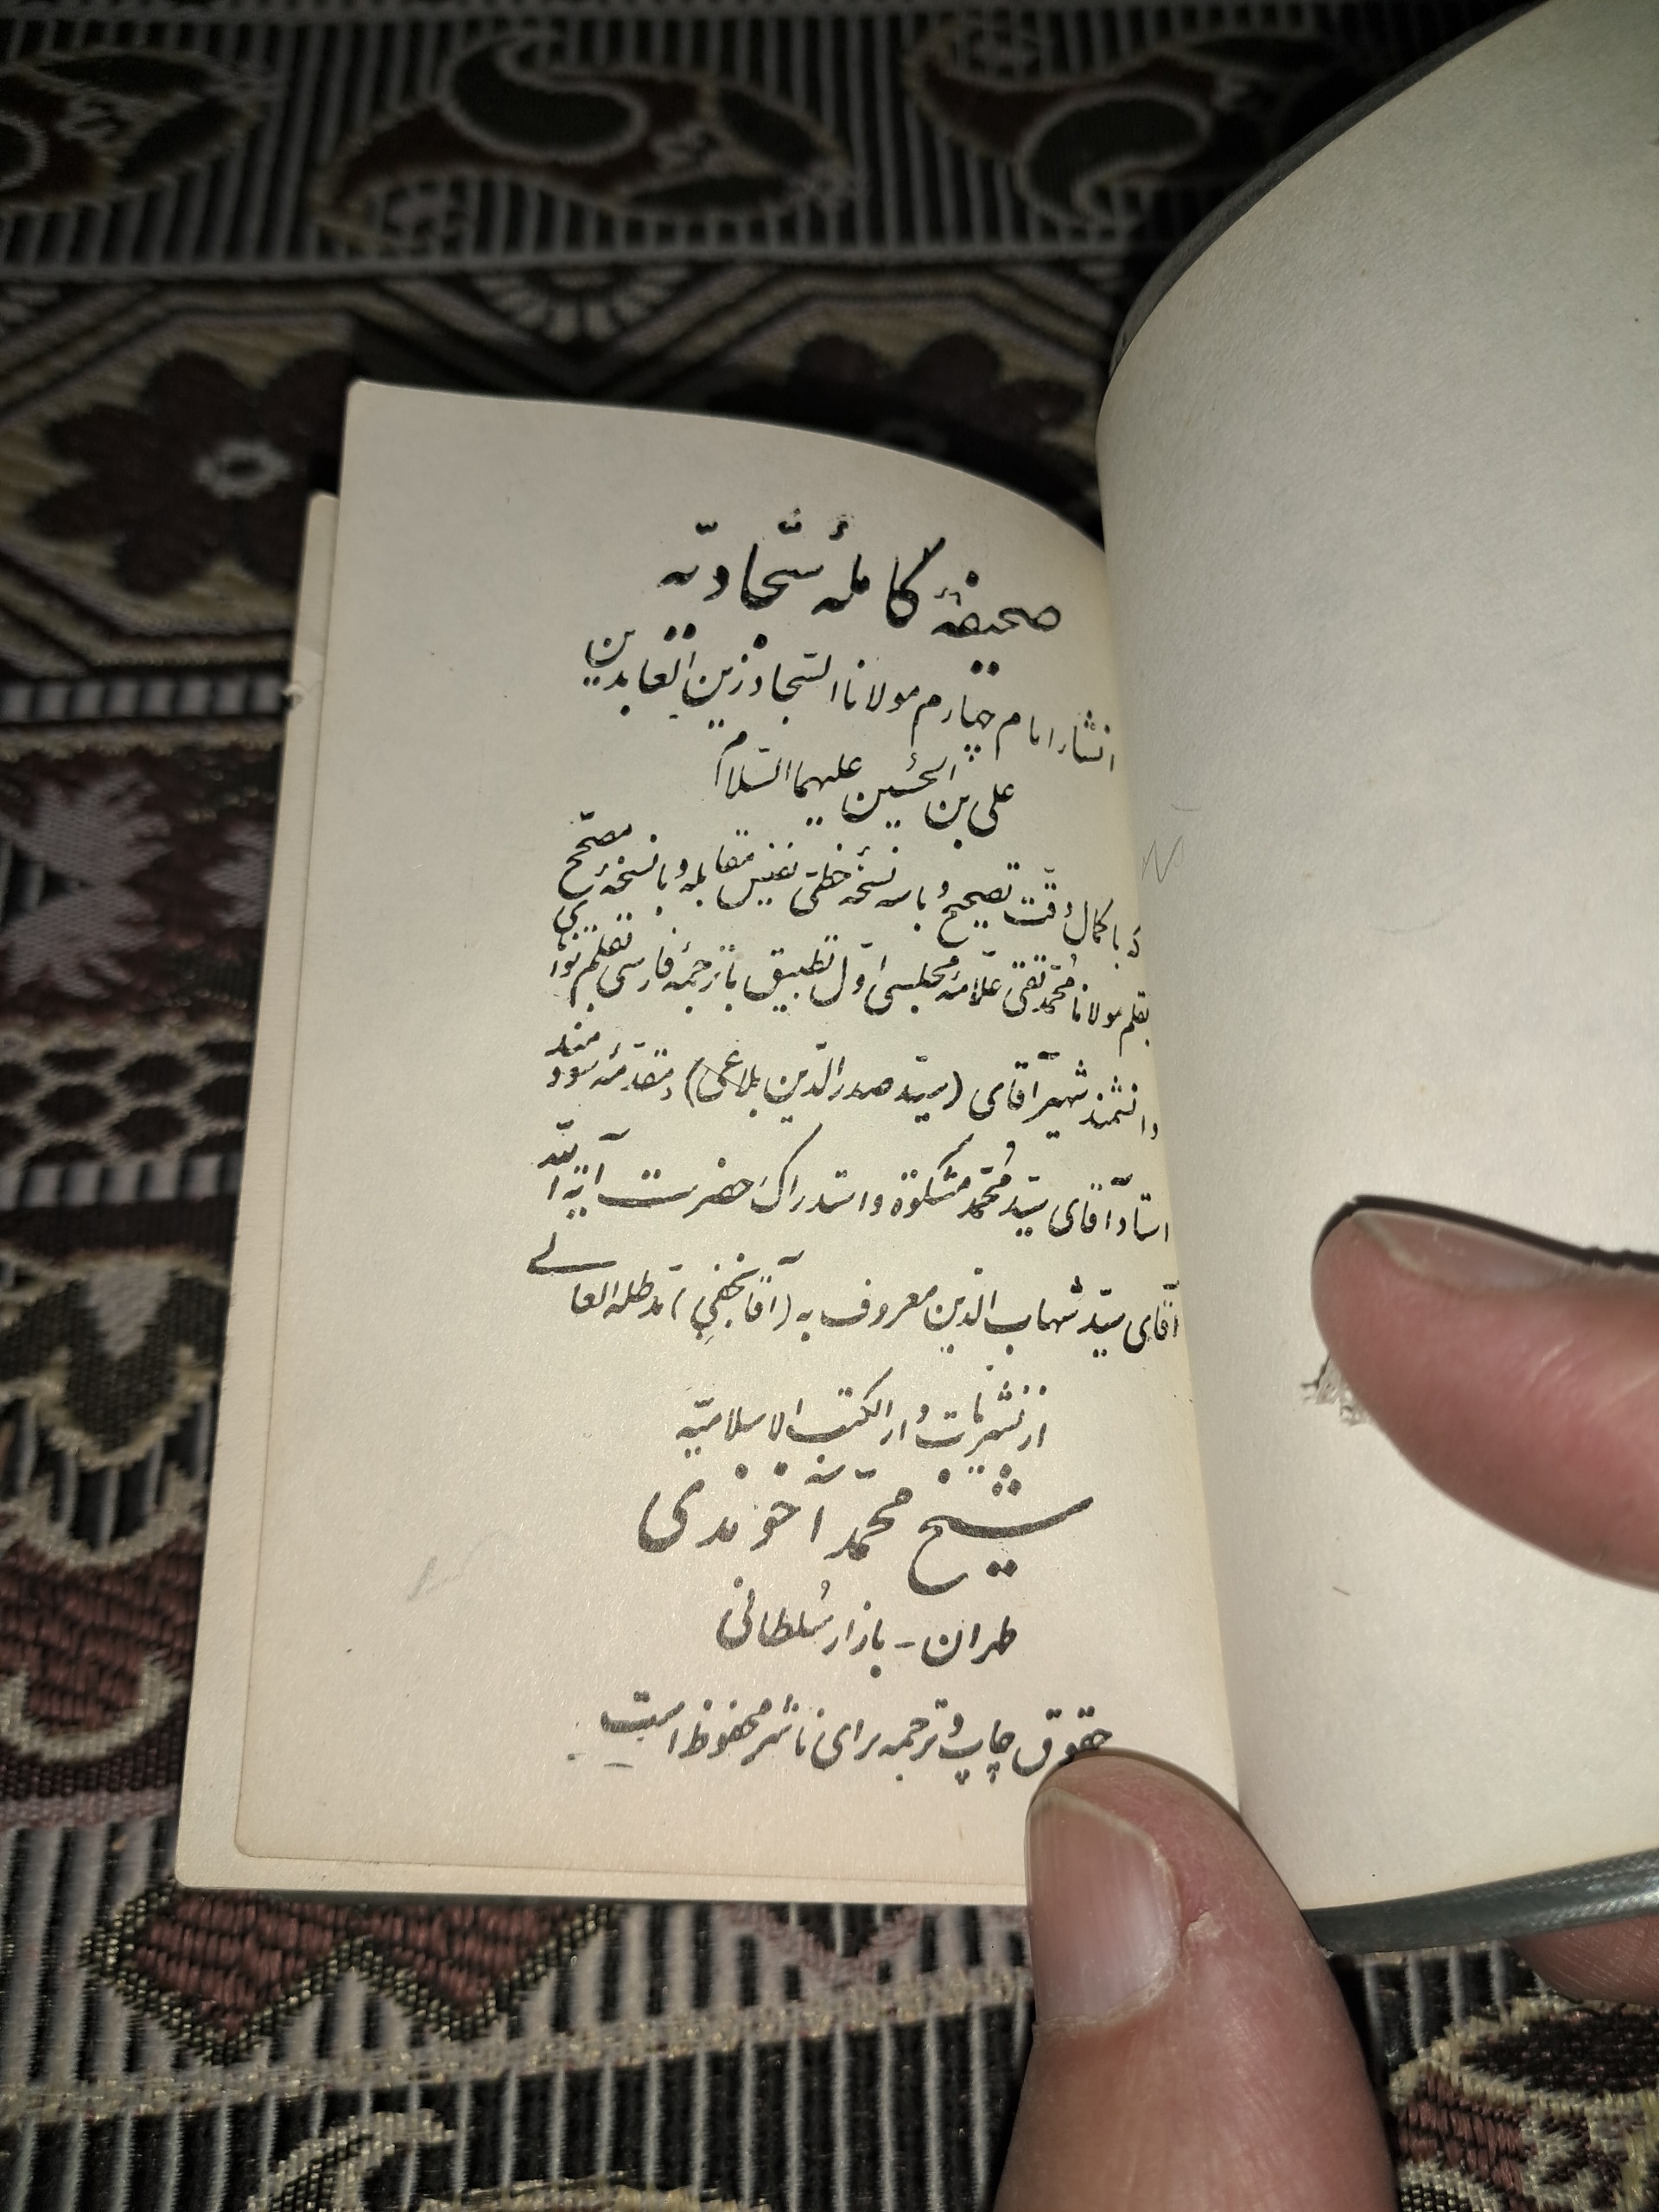 صحیفهٔ کاملهٔ سجّادیّه
انشاء امام چهارم مولانا السّجاد زین العابدین
علی بن الحسین علیهما السّلام
که با کمال دقّت تصحیح و با سه نسخهٔ خطّی نفیس مقابله و با نسخهٔ مصحّح
بقلم مولانا محمّد تقی علّامهٔ مجلسی اوّل تطبیق با ترجمهٔ فارسی بقلم توانای
دانشمند شهیر آقای (سیّد صدرالدّین بلاغی) و مقدّمهٔ سودمند
استاد آقای سیّد محمّد مشکوة و استدراک حضرت آیة اللّه
آقای سیّد شهاب الدّین معروف به (آقا نجفی) مدّ ظله العالی
از نشریات دار الکتب الاسلامیّه
شیخ محمّد آخوندی
طهران - بازار سُلطانی
حقوق چاپ و ترجمه برای ناشر محفوظ است